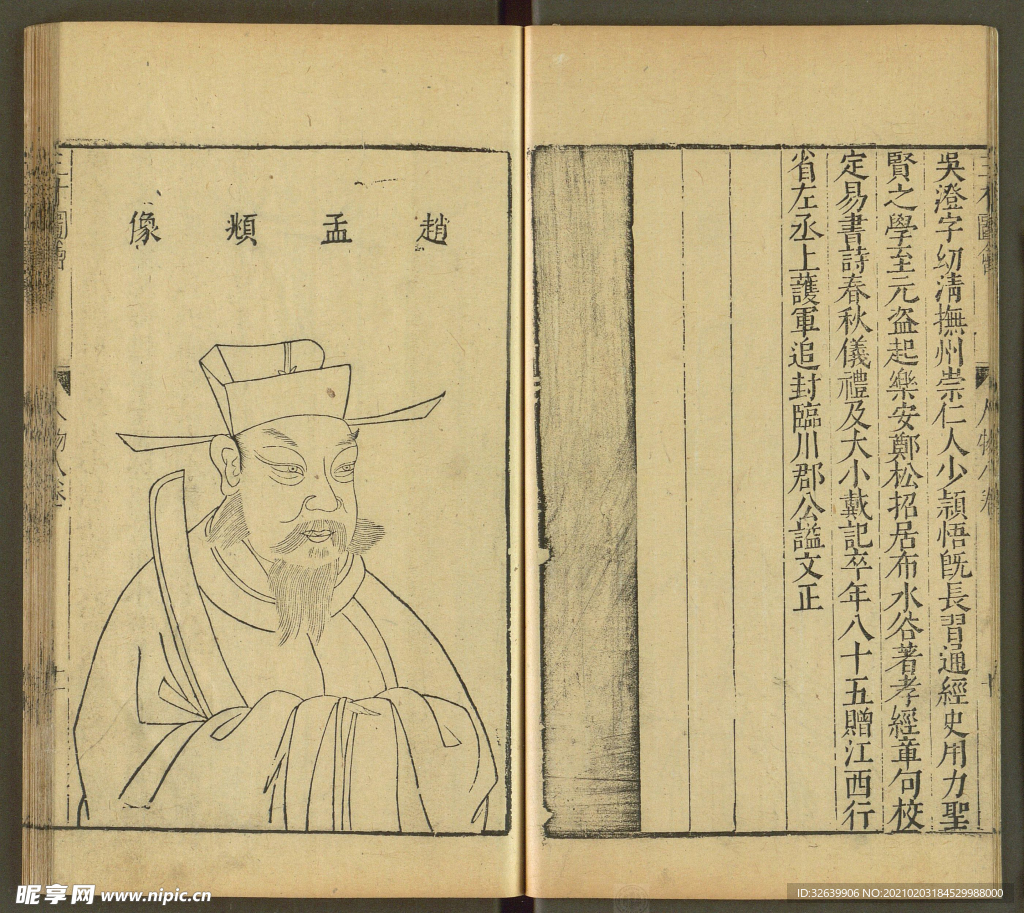 吳澄字幼淸撫州崇仁人少頴悟旣長習通經史用力聖
賢之學至元盗起樂安鄭松招居布水谷著孝經章句校
定易書詩春秋儀禮及大小戴記卒年八十五贈江西行
省左丞上護軍追封臨川郡公謚文正
趙孟頫像
三才圖會
人物八卷
十
三才圖會
人物八卷
十一
昵享网 www.nipic.cn
ID:32639906 NO:20210203184529988000